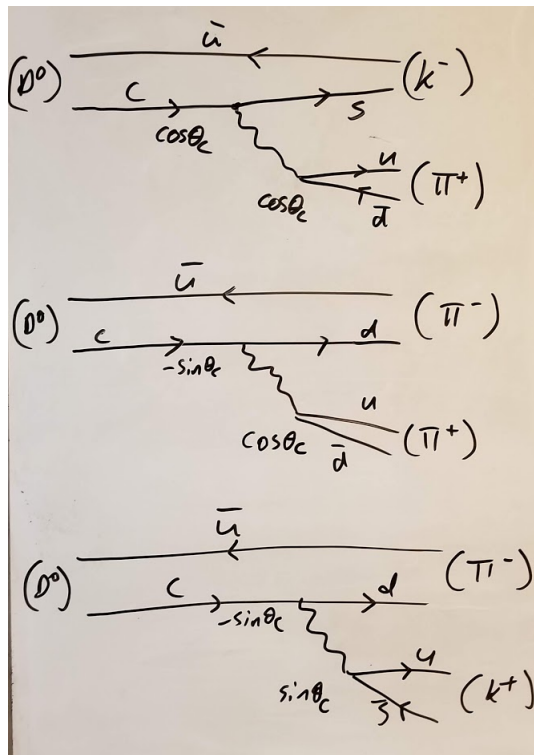 ū
(D⁰) (k⁻)
c s
cosθc
u
(π⁺)
cosθc d̄
ū
(D⁰) (π⁻)
c d
-sinθc
u
(π⁺)
cosθc d̄
ū
(π⁻)
(D⁰)
c d
-sinθc
u
(k⁺)
sinθc s̄